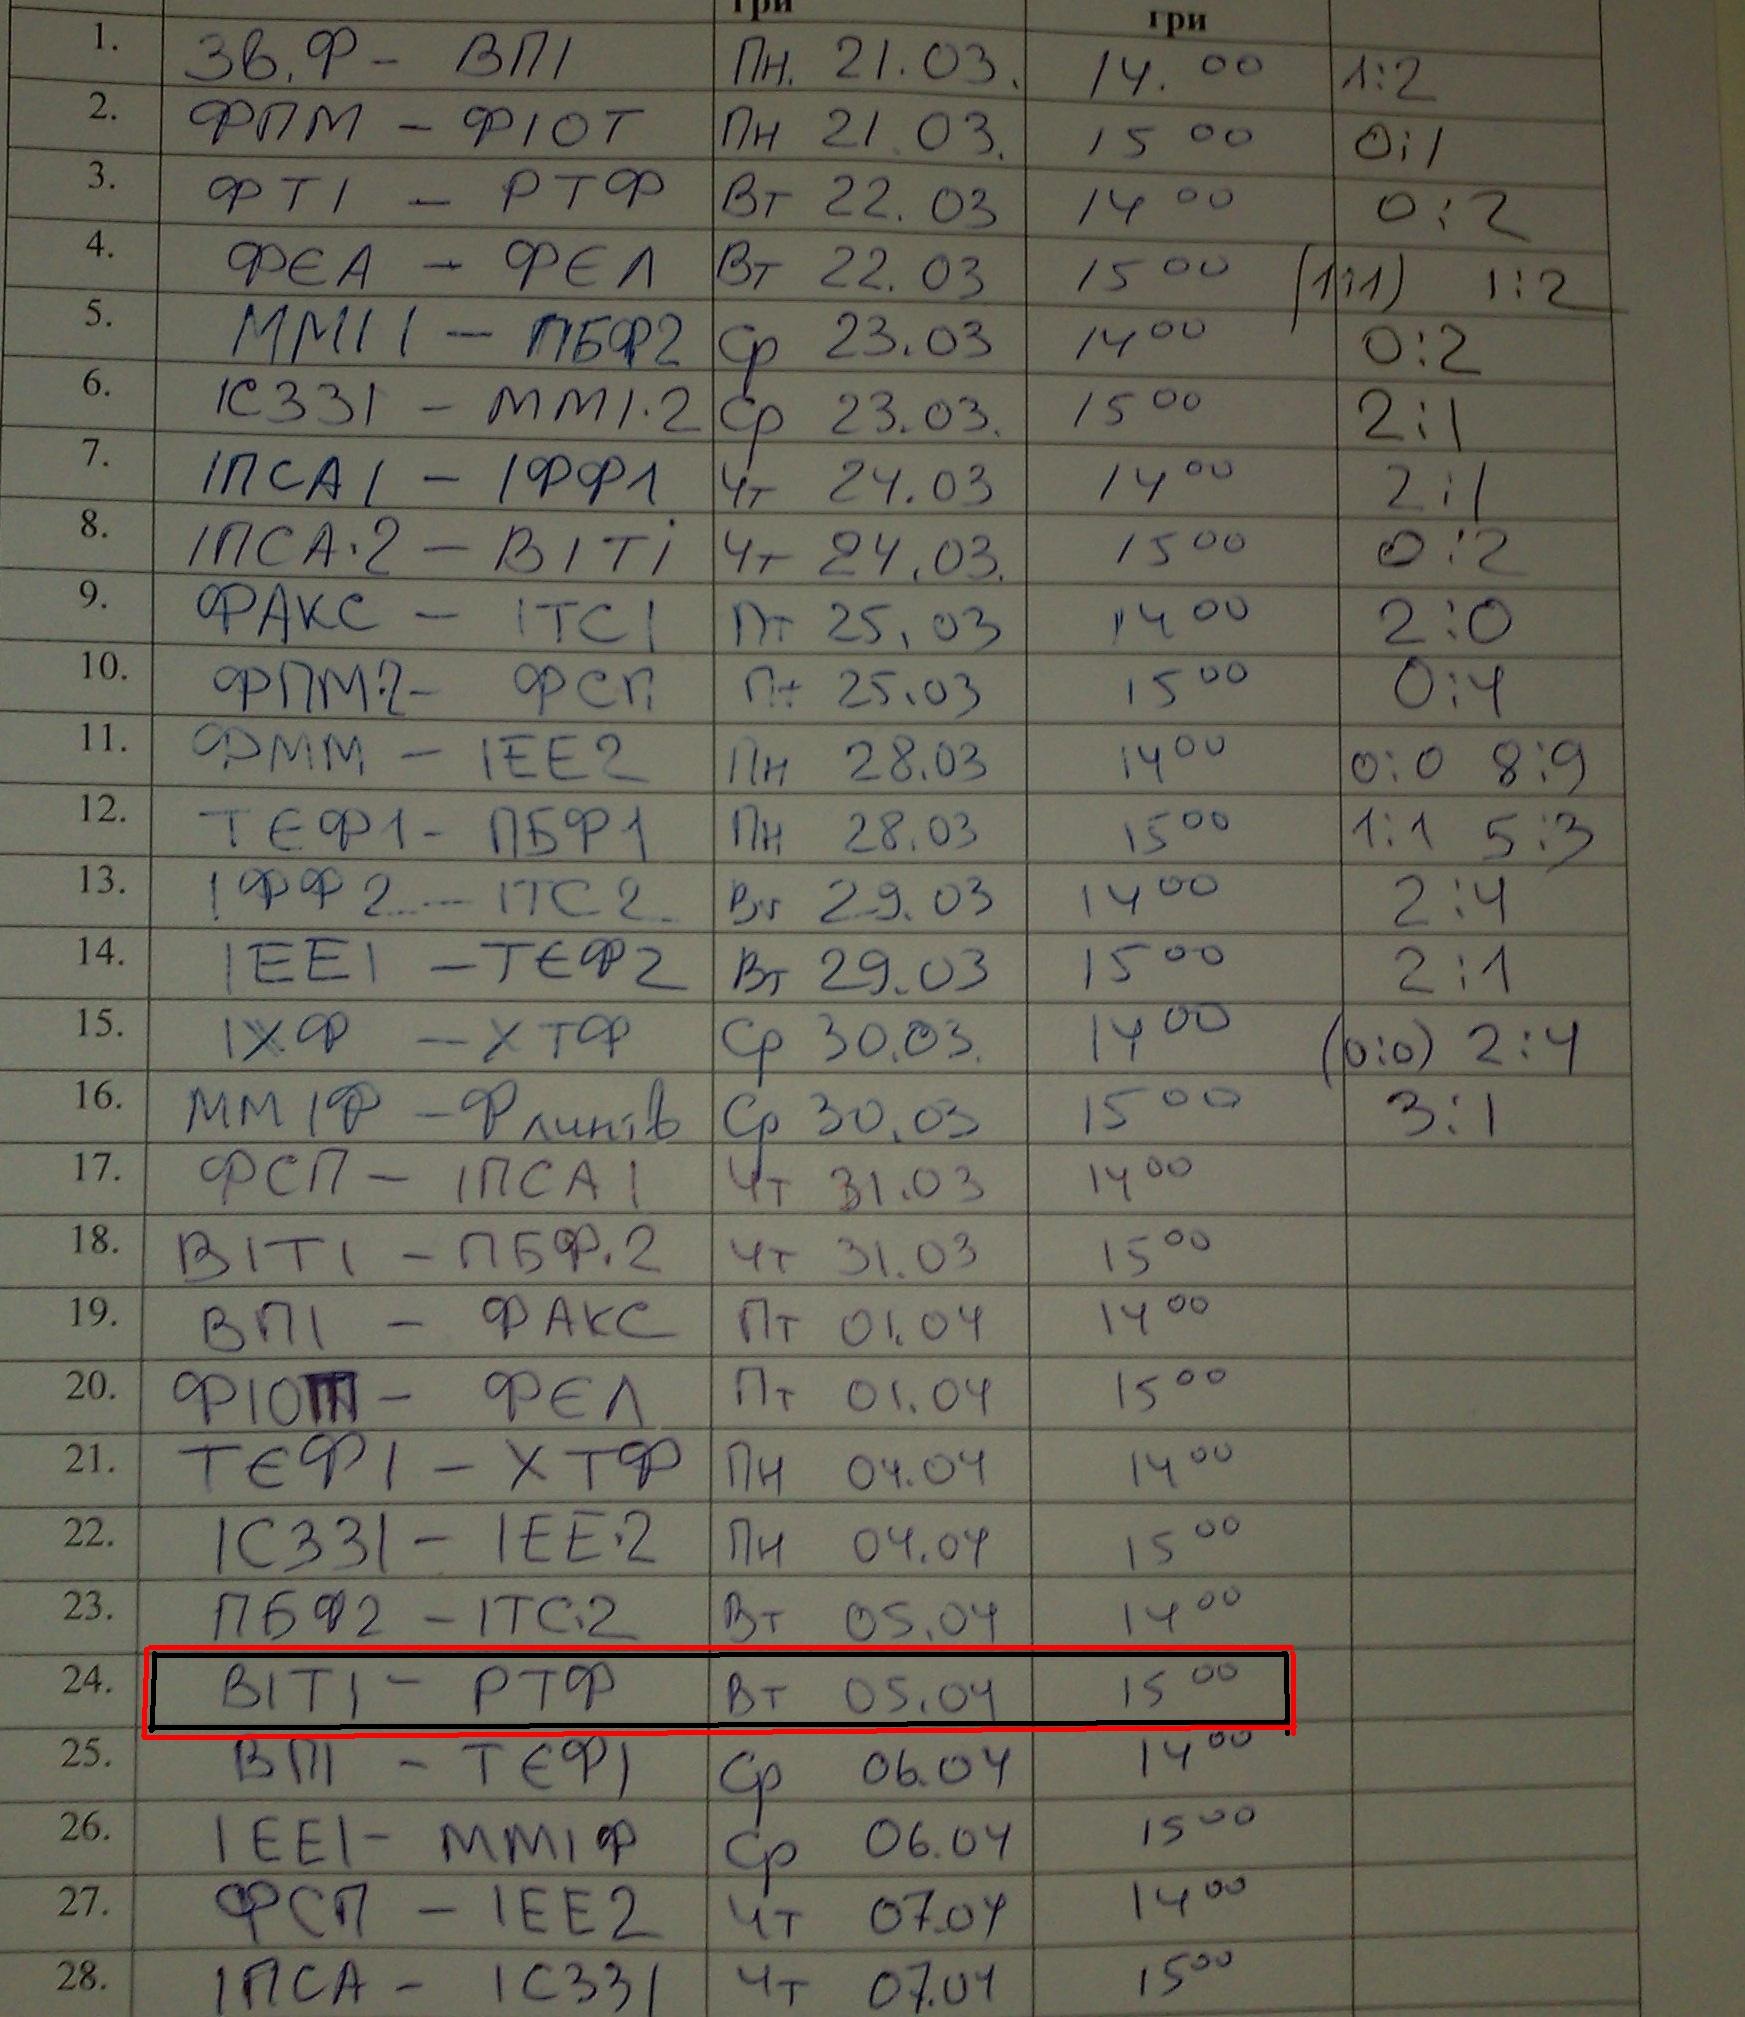 гри гри
1. Зв.Ф - ВПІ Пн. 21.03. 14.00 1:2
2. ФПМ - ФІОТ Пн 21.03. 15 00 0:1
3. ФТІ - РТФ Вт 22.03 14 00 0:2
4. ФЄА - ФЄЛ Вт 22.03 15 00 (1:1) 1:2
5. ММІ 1 - ПБФ2 Ср 23.03 14 00 0:2
6. ІСЗЗІ - ММІ.2 Ср 23.03. 15 00 2:1
7. ІПСА 1 - ІФФ1 Чт 24.03 14 00 2:1
8. ІПСА.2 - ВІТі Чт 24.03. 15 00 0:2
9. ФАКС - ІТС1 Пт 25.03 14 00 2:0
10. ФПМ.2 - ФСП Пт 25.03 15 00 0:4
11. ФММ - ІЕЕ2 Пн 28.03 14 00 0:0 8:9
12. ТЄФ1 - ПБФ1 Пн 28.03 15 00 1:1 5:3
13. ІФФ2 - ІТС2 Вт 29.03 14 00 2:4
14. ІЕЕ1 - ТЄФ2 Вт 29.03 15 00 2:1
15. ІХФ - ХТФ Ср 30.03. 14 00 (0:0) 2:4
16. ММІФ - Флингів Ср 30.03 15 00 3:1
17. ФСП - ІПСА 1 Чт 31.03 14 00
18. ВІТІ - ПБФ.2 Чт 31.03 15 00
19. ВПІ - ФАКС Пт 01.04 14 00
20. ФІОТ - ФЄЛ Пт 01.04 15 00
21. ТЄФ1 - ХТФ Пн 04.04 14 00
22. ІСЗЗІ - ІЕЕ.2 Пн 04.04 15 00
23. ПБФ2 - ІТС.2 Вт 05.04 14 00
24. ВІТІ - РТФ Вт 05.04 15 00
25. ВПІ - ТЄФ1 Ср 06.04 14 00
26. ІЕЕ1 - ММІФ Ср 06.04 15 00
27. ФСП - ІЕЕ2 Чт 07.04 14 00
28. ІПСА - ІСЗЗІ Чт 07.04 15 00